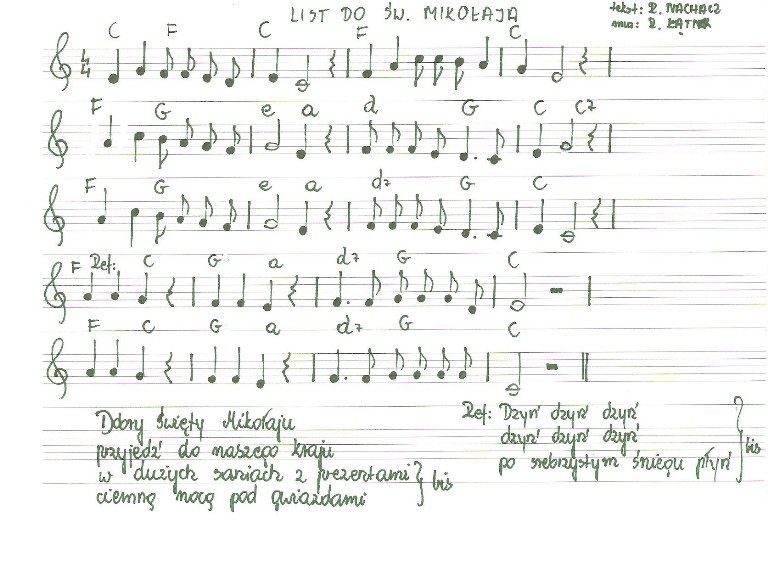 LIST DO ŚW. MIKOŁAJA
tekst: R. NACHACZ
muz: R. ŁATNIK
C F C F C
F G e a d G C C7
F G e a d7 G C
F Ref: C G a d7 G C
F C G a d7 G C
Dobry święty Mikołaju
przyjedź do naszego kraju
w dużych saniach z prezentami
ciemną nocą pod gwiazdami
bis
Ref: Dzyń dzyń dzyń
dzyń dzyń dzyń
po srebrzystym śniegu płyń
bis